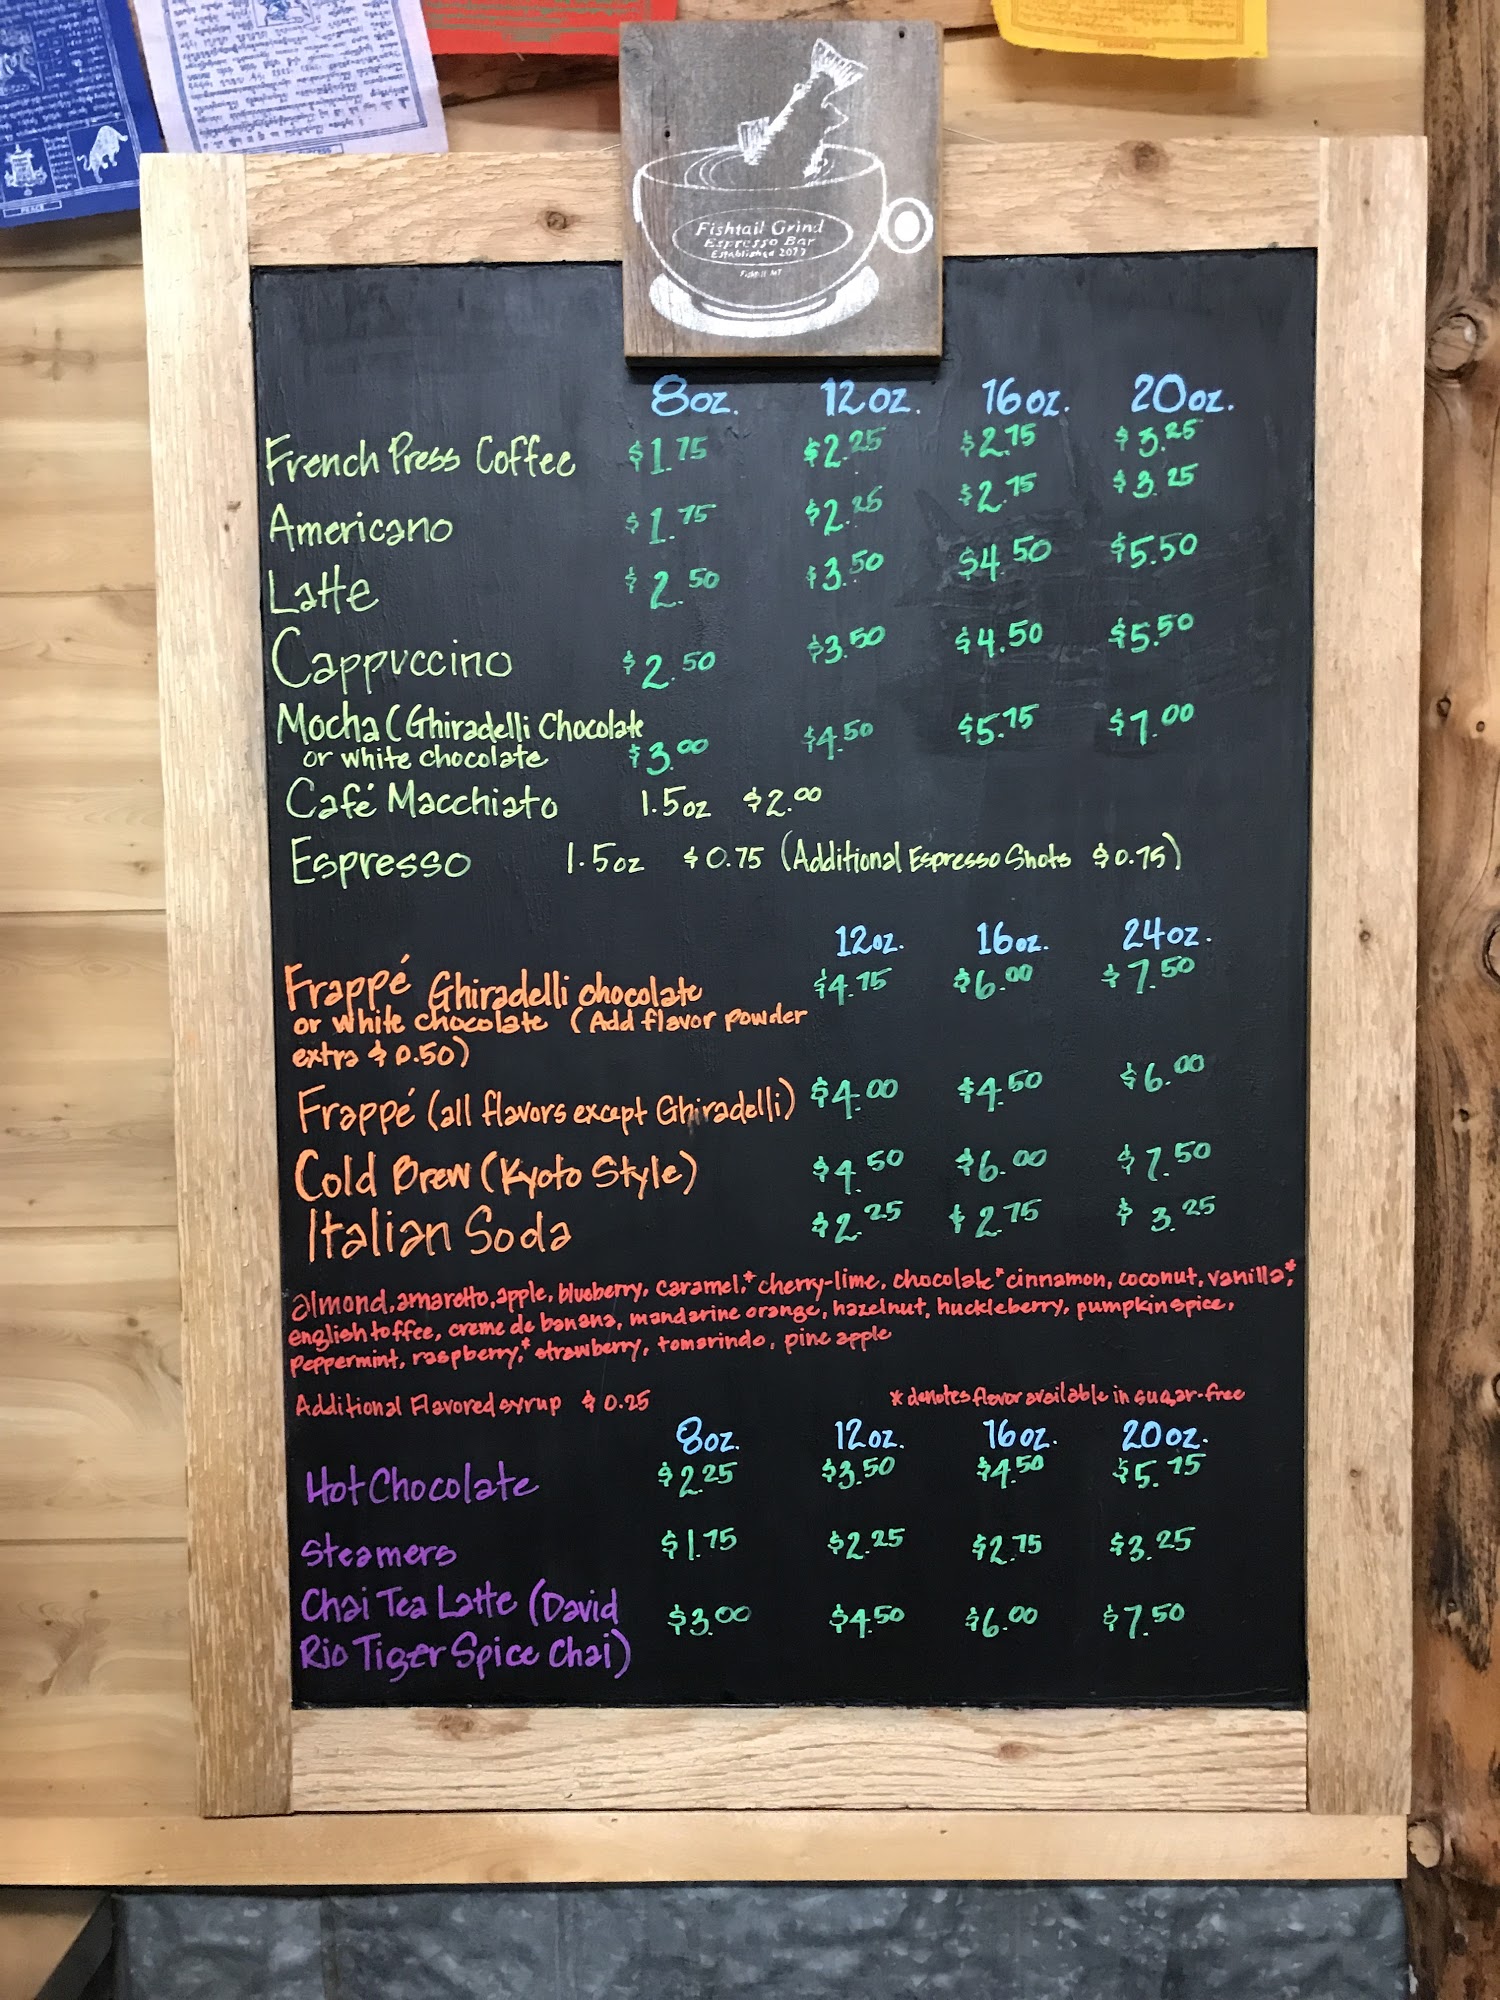 Fishtail Grind
Espresso Bar
8oz. 12oz. 16oz. 20oz.
French Press Coffee $1.75 $2.25 $2.75 $3.25
Americano $1.75 $2.25 $2.75 $3.25
Latte $2.50 $3.50 $4.50 $5.50
Cappuccino $2.50 $3.50 $4.50 $5.50
Mocha (Ghiradelli Chocolate
or white chocolate $3.00 $4.50 $5.75 $7.00
Café Macchiato 1.5oz $2.00
Espresso 1.5oz $0.75 (Additional Espresso Shots $0.75)
12oz. 16oz. 24oz.
Frappé Ghiradelli chocolate $4.75 $6.00 $7.50
or white chocolate (Add flavor powder
extra $0.50)
Frappé (all flavors except Ghiradelli) $4.00 $4.50 $6.00
Cold Brew (Kyoto Style) $4.50 $6.00 $7.50
Italian Soda $2.25 $2.75 $3.25
almond, amaretto, apple, blueberry, caramel,* cherry-lime, chocolate* cinnamon, coconut, vanilla*,
english toffee, creme de banana, mandarine orange, hazelnut, huckleberry, pumpkin spice,
peppermint, raspberry,* strawberry, tomarindo, pine apple
Additional Flavored syrup $0.25 * denotes flavor available in sugar-free
8oz. 12oz. 16oz. 20oz.
Hot Chocolate $2.25 $3.50 $4.50 $5.75
Steamers $1.75 $2.25 $2.75 $3.25
Chai Tea Latte (David $3.00 $4.50 $6.00 $7.50
Rio Tiger Spice Chai)
PEACE